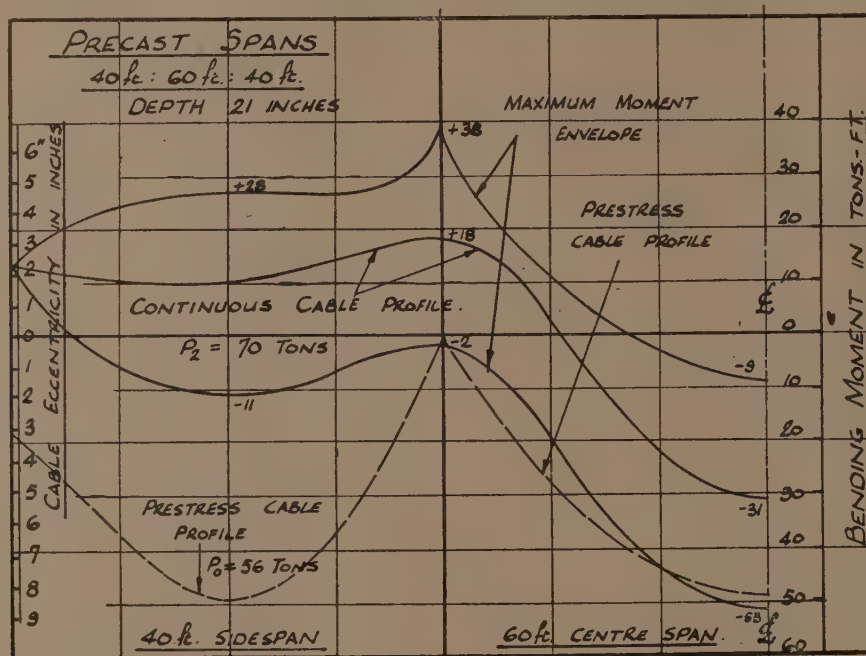 PRECAST SPANS
40 ft. : 60 ft. : 40 ft.
DEPTH 21 INCHES
MAXIMUM MOMENT
ENVELOPE
PRESTRESS
CABLE PROFILE
CONTINUOUS CABLE PROFILE.
P₂ = 70 TONS
PRESTRESS CABLE
PROFILE
P₀ = 56 TONS
40 ft. SIDESPAN
60 ft. CENTRE SPAN.
CABLE ECCENTRICITY IN INCHES
6"
5
4
3
2
1
0
1
2
3
4
5
6
7
8
9
+28
+38
+18
-2
-11
-9
-31
-53
℄
℄
40
30
20
10
0
10
20
30
40
50
60
BENDING MOMENT IN TONS.-FT.